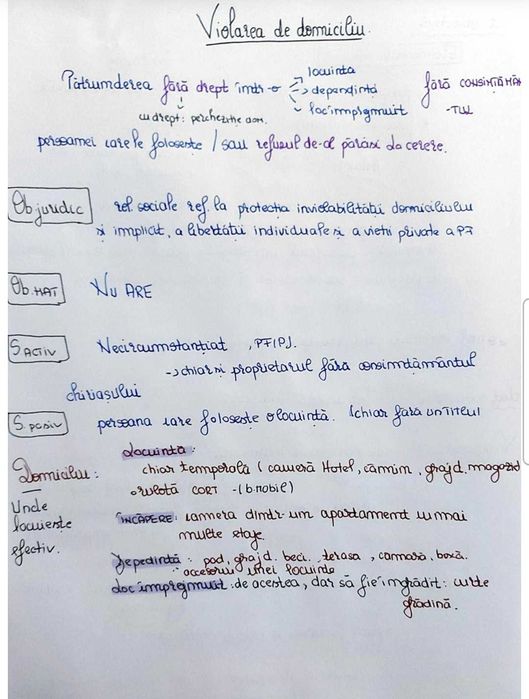 Violarea de domiciliu.
Pătrunderea fără drept într-o → locuința
→ dependință
→ loc împrejmuit
fără CONSIMȚĂMÂN
-TUL
cu drept: percheziție dom.
persoanei care le folosește / sau refuzul de-al părăsi la cerere.
Ob juridic
rel. sociale ref. la protecția inviolabilității domiciliului
și implicit, a libertății individuale și a vieții private a PF
Ob. MAT
NU ARE
S ACTIV
Necircumstanțiat, PF/PJ.
→ chiar și proprietarul fără consimțământul
chiriașului
S. pasiv
persoana care folosește o locuință. (chiar fără un titlu)
Domiciliu:
Unde
locuiește
efectiv.
Locuință:
chiar temporală (cameră Hotel, cămin, grajd, magazie
rulotă CORT - (b. mobil)
ÎNCĂPERE: camera dintr-un apartament cu mai
multe etaje.
Depedință: pod, grajd. beci. terasa, cămară. boxă.
accesoriu unei locuințe
Loc împrejmuit: de acestea, dar să fie îngrădit: curte
grădină.